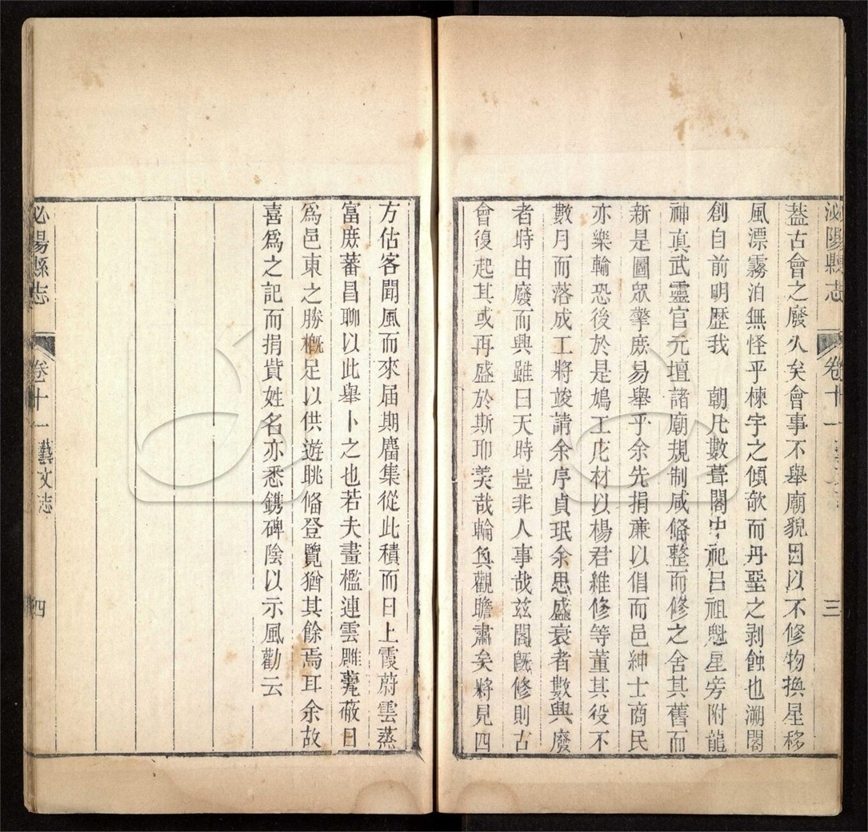 泌陽縣志
卷十一
三
蓋古會之廢久矣會事不舉廟貌因以不修物換星移
風漂霧泊無怪乎棟宇之傾欹而丹堊之剥蝕也溯閣
創自前明歷我　朝凡數葺閣中祀吕祖魁星旁附龍
神真武靈官元壇諸廟規制咸偹整而修之舍其舊而
新是圖眾擎庶易舉乎余先捐亷以倡而邑紳士商民
亦樂輸恐後於是鳩工庀材以楊君維修等董其役不
數月而落成工將竣請余序貞珉余思盛衰者數興廢
者時由廢而興雖曰天時豈非人事哉兹閣旣修則古
會復起其或再盛於斯耶美哉輪奐觀瞻肅矣將見四
方估客聞風而來届期麕集從此積而日上霞蔚雲蒸
富庶蕃昌聊以此舉卜之也若夫畫檻連雲雕甍蔽日
爲邑東之勝概足以供遊眺偹登覽猶其餘焉耳余故
喜爲之記而捐貲姓名亦悉鐫碑陰以示風勸云
泌陽縣志
卷十一
藝文志
四